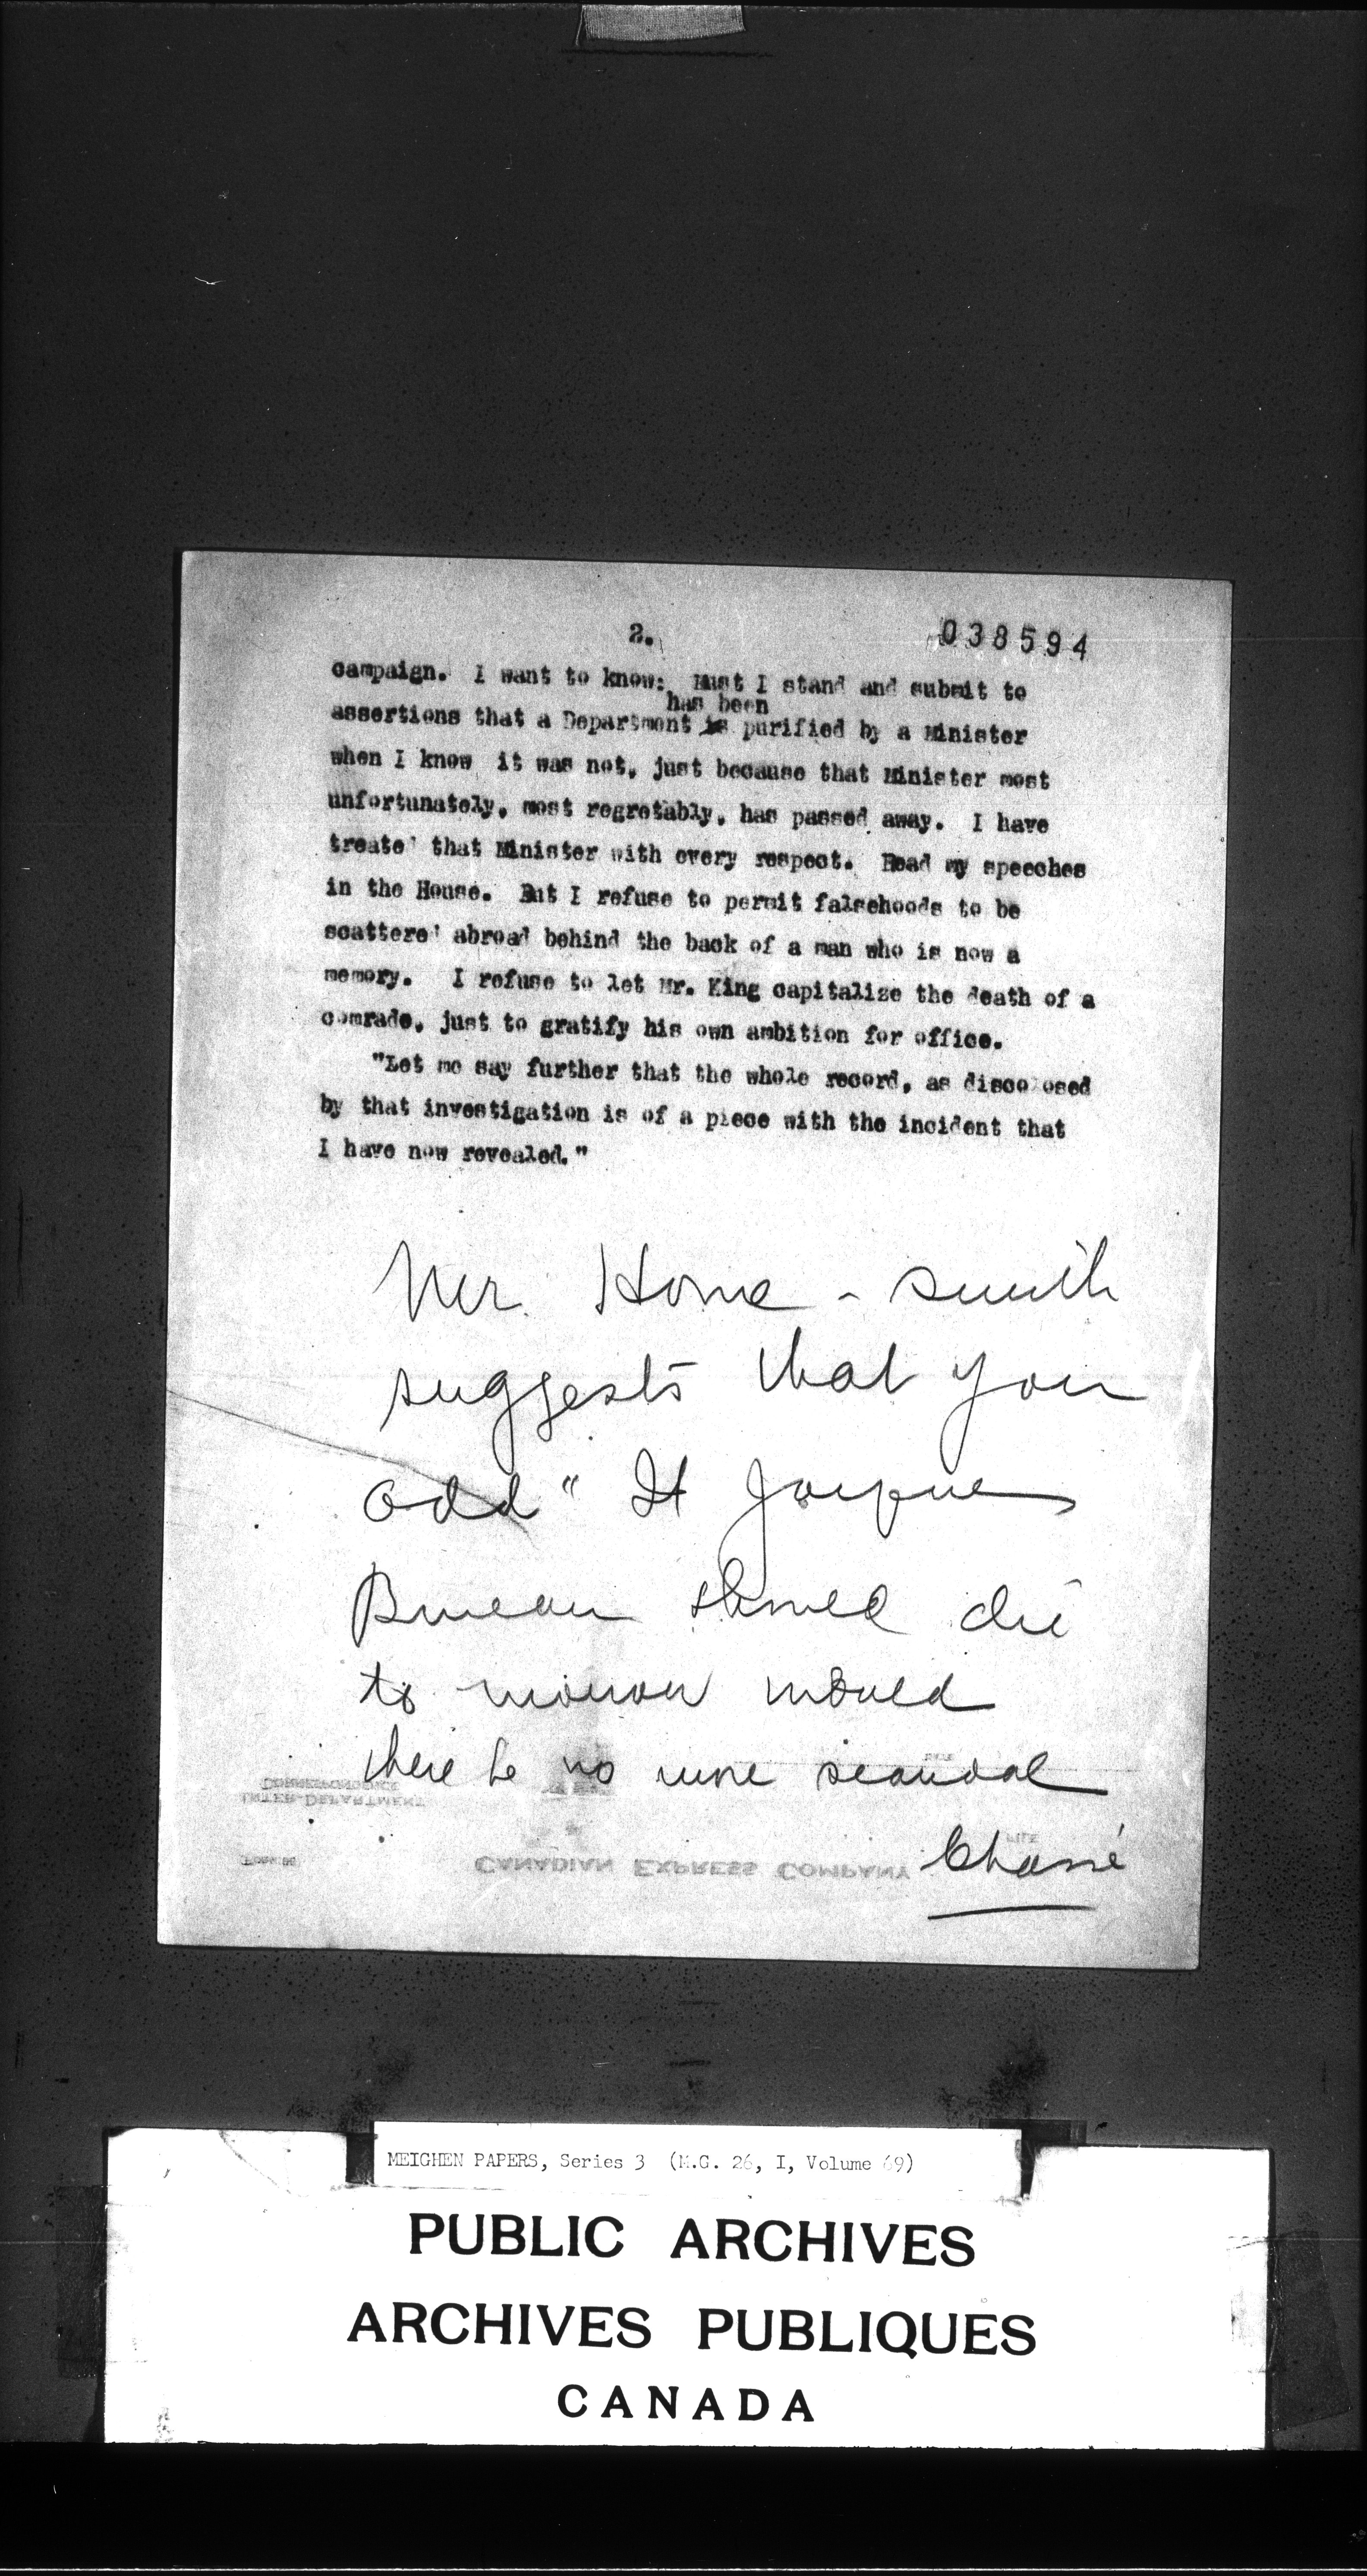 2.
038594
campaign. I want to know: Must I stand and submit to
has been
assertions that a Department is purified by a Minister
when I know it was not, just because that Minister most
unfortunately, most regretably, has passed away. I have
treated that Minister with every respect. Read my speeches
in the House. But I refuse to permit falsehoods to be
scattered abroad behind the back of a man who is now a
memory. I refuse to let Mr. King capitalize the death of a
comrade, just to gratify his own ambition for office.
"Let me say further that the whole record, as discolosed
by that investigation is of a piece with the incident that
I have now revealed."
Mr. Home - Smith
suggests that you
add "If Jacques
Bureau should die
to morrow would
there be no more scandal
CORRESPONDENCE
INTER-DEPARTMENT
FILE
CANADIAN EXPRESS COMPANY
MEIGHEN PAPERS, Series 3 (M.G. 26, I, Volume 69)
PUBLIC ARCHIVES
ARCHIVES PUBLIQUES
CANADA